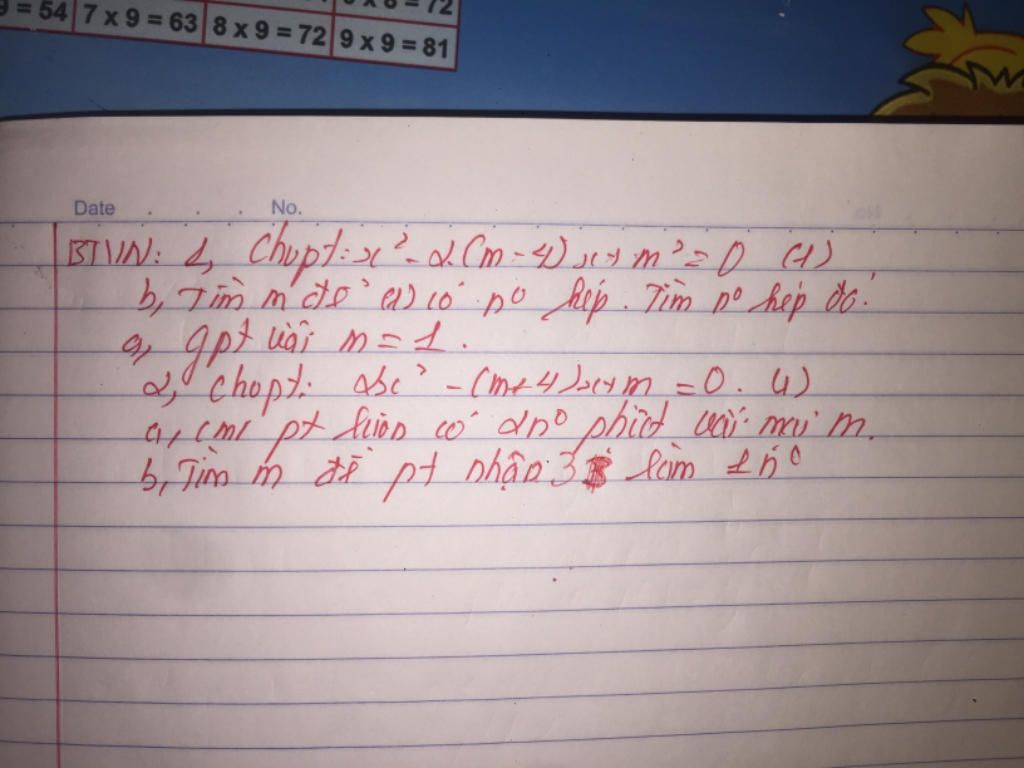 9 = 54 7 x 9 = 63 8 x 9 = 72 9 x 9 = 81
x 8 = 72
Date . . . No.
BTVN: 1, Chopt: x² - 2(m-4)x+m² = 0 (1)
b, Tìm m để (1) có nº kép. Tìm nº kép đó.
a, gpt với m = 1.
2, Chopt: 2x² - (m+4)x+m = 0. (1)
a, cmr pt luôn có 2nº phbt với mọi m.
b, Tìm m để pt nhận 3 làm 1nº